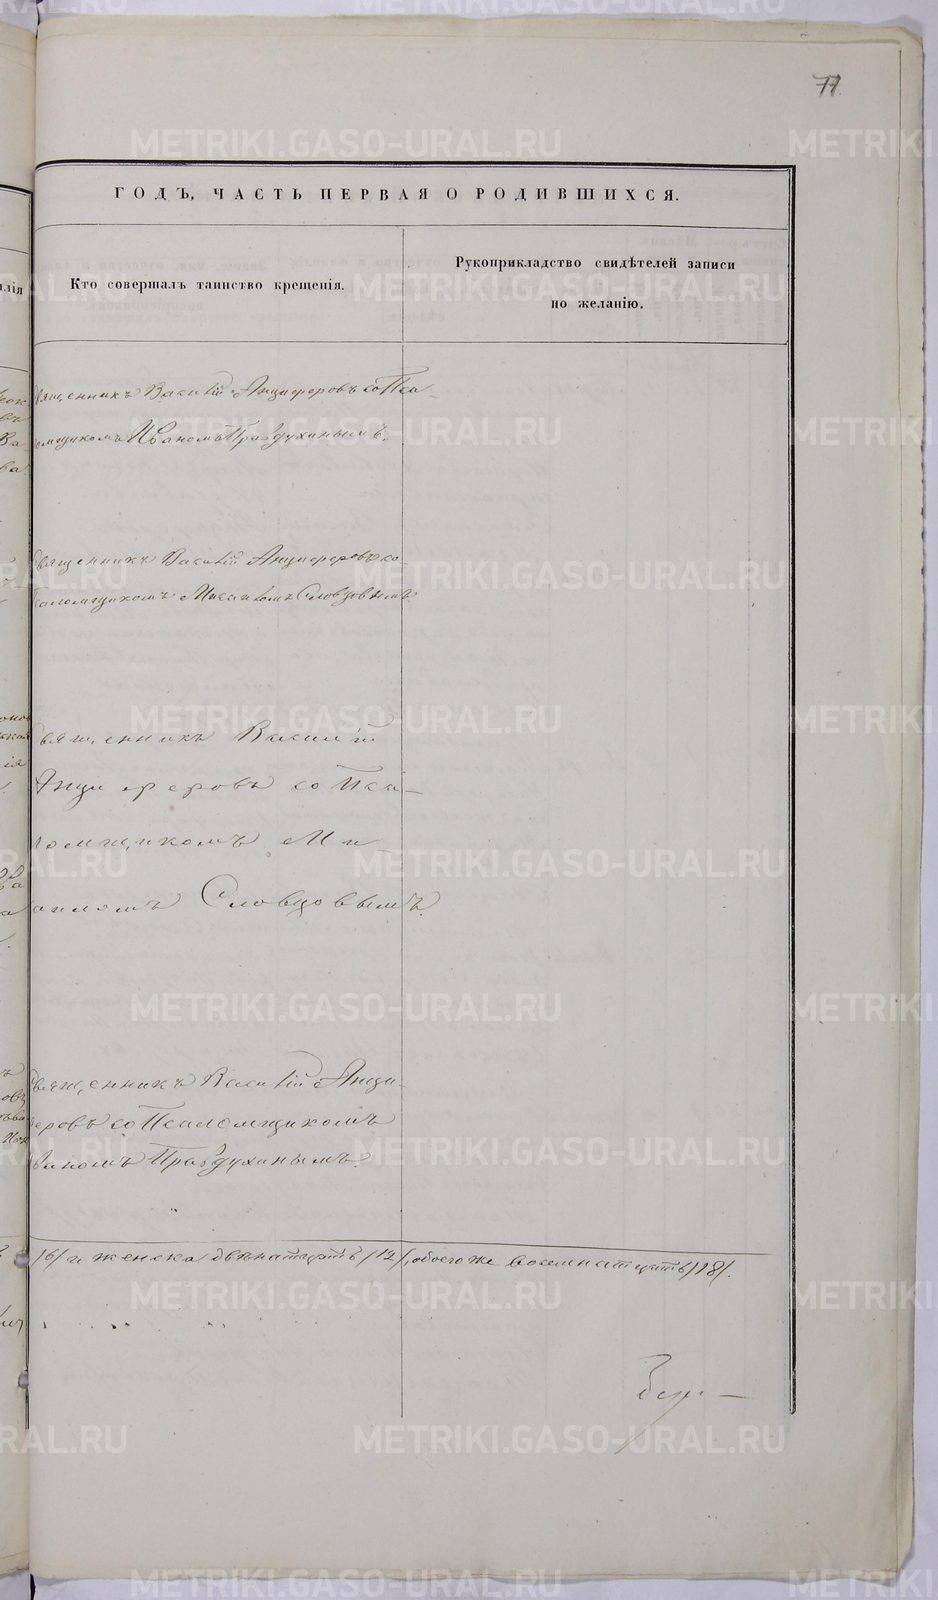 77.
ГОДЪ, ЧАСТЬ ПЕРВАЯ О РОДИВШИХСЯ.
Кто совершалъ таинство крещенія.
Рукоприкладство свидѣтелей записи
по желанію.
вященникъ Василій Анциферовъ со Пса-
омщикомъ Иваномъ Праздухинымъ.
вященникъ Василій Анциферовъ со
псаломщикомъ Михаиломъ Словцовымъ
вященникъ Василій
Анциферовъ со Пса-
ломщикомъ Ми-
хаиломъ Словцовымъ.
вященникъ Василій Анци-
феровъ со Псаломщикомъ
Иваномъ Праздухинымъ.
/6/ и женска двѣнатцать /12/, обоего же восемнатцать /18/.
METRIKI.GASO-URAL.RU